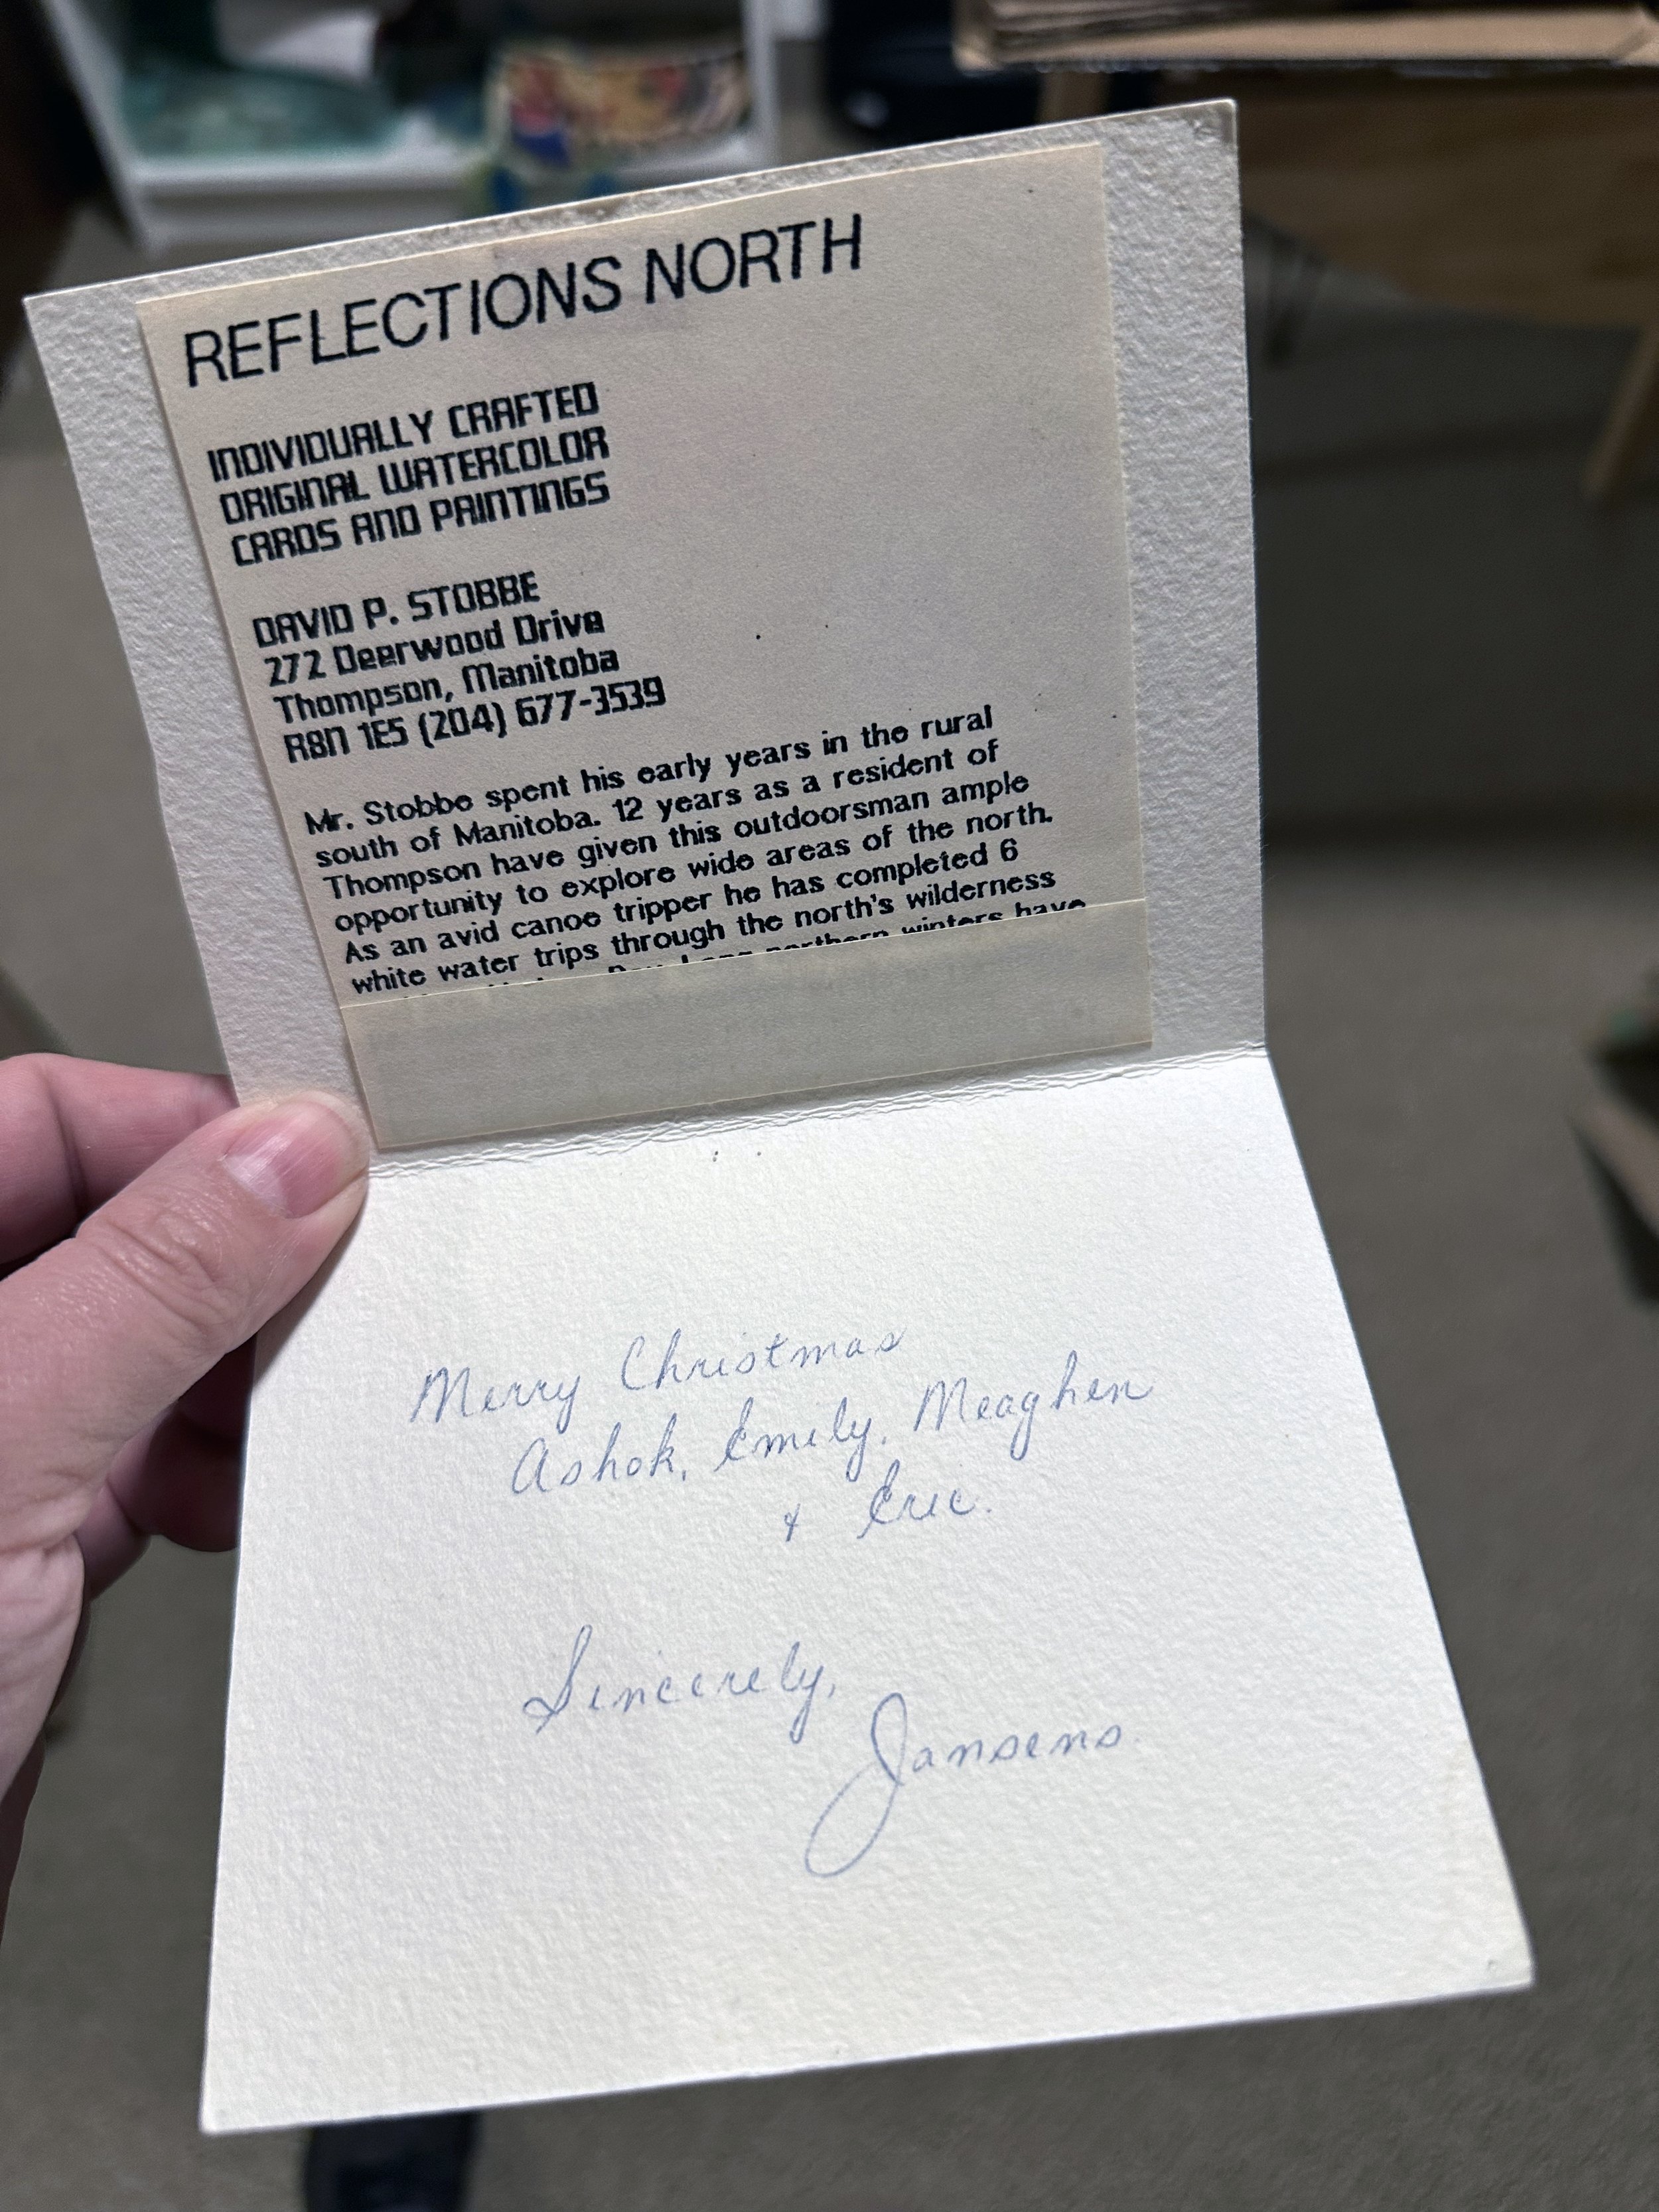 REFLECTIONS NORTH
INDIVIDUALLY CRAFTED
ORIGINAL WATERCOLOR
CARDS AND PAINTINGS
DAVID P. STOBBE
272 Deerwood Drive
Thompson, Manitoba
R8N 1E5 (204) 677-3539
Mr. Stobbe spent his early years in the rural
south of Manitoba. 12 years as a resident of
Thompson have given this outdoorsman ample
opportunity to explore wide areas of the north.
As an avid canoe tripper he has completed 6
white water trips through the north's wilderness
Long northern winters have
Merry Christmas
Ashok, Emily, Meaghen
& Eric.
Sincerely,
Jansens